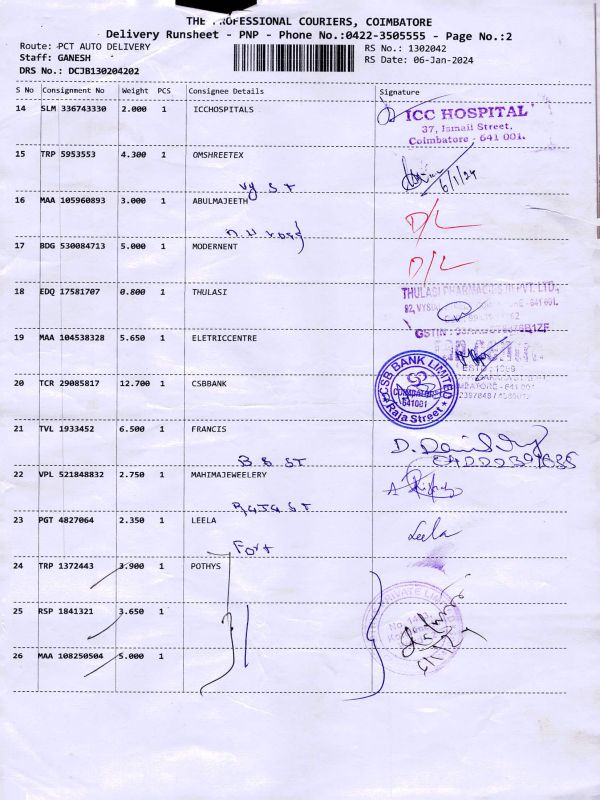 THE PROFESSIONAL COURIERS, COIMBATORE
Delivery Runsheet - PNP - Phone No.:0422-3505555 - Page No.:2
Route: PCT AUTO DELIVERY RS No.: 1302042
Staff: GANESH RS Date: 06-Jan-2024
DRS No.: DCJB130204202
S No Consignment No Weight PCS Consignee Details Signature
14 SLM 336743330 2.000 1 ICCHOSPITALS
ICC HOSPITAL
37, Ismail Street,
Coimbatore - 641 001.
15 TRP 5953553 4.300 1 OMSHREETEX
6/1/24
Vy S.T
16 MAA 105960893 3.000 1 ABULMAJEETH D/L
17 BDG 530084713 5.000 1 MODERNENT D/L
18 EDQ 17581707 0.800 1 THULASI
THULASI PHARMACIES PVT. LTD.,
19 MAA 104538328 5.650 1 ELETRICCENTRE
20 TCR 29085817 12.700 1 CSBBANK
CSB BANK LIMITED
COIMBATORE
641001
Raja Street
21 TVL 1933452 6.500 1 FRANCIS
B.B ST
22 VPL 521848832 2.750 1 MAHIMAJEWEELERY
Raja S.T
23 PGT 4827064 2.350 1 LEELA Leela
Fort
24 TRP 1372443 3.900 1 POTHYS
25 RSP 1841321 3.650 1
26 MAA 108250504 5.000 1